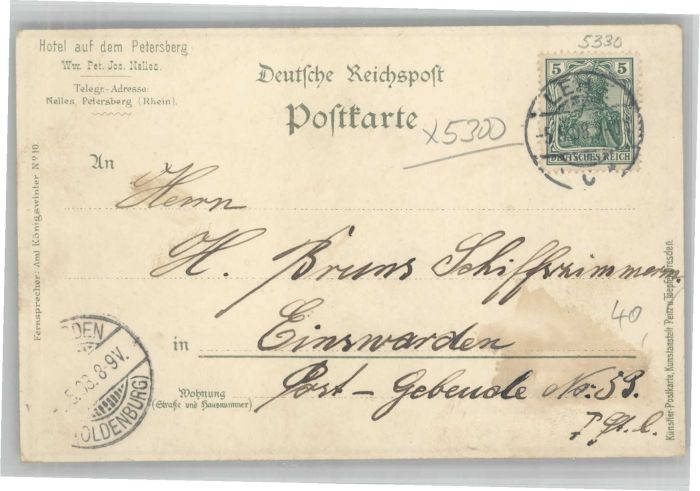 Hotel auf dem Petersberg
Ww. Pet. Jos. Nelles.
Telegr.-Adresse:
Nelles, Petersberg (Rhein).
Fernsprecher: Amt Königswinter Nº 10.
Deutsche Reichspost
Postkarte
5330
x5300
5 5
DEUTSCHES REICH
An
Herrn
H. Bruns Schiffszimmerm.
in Einswarden
Wohnung
(Straße und Hausnummer)
Post-Gebeude No. 53.
40
8-9V.
(OLDENBURG)
Künstler-Postkarte, Kunstanstalt Dresden.